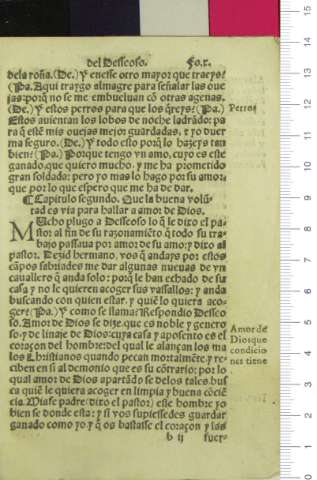 del Desseoso. Fo.x.
dela roña. (De.) Y encesse otro mayor que traeys?
(Pa. Aqui traygo almagre para señalar las oue
jas: porq̃ no se me embueluan cõ otras agenas.
(De.) Y estos perros para que los q̃reys? (Pa.)
Perros
Estos auientan los lobos de noche ladrãdo: pa
ra q̃ estẽ mis ouejas mejor guardadas, ⁊ yo duer
ma seguro. (De.) Y todo esto porq̃ lo hazeys tan
bien? (Pa.) Porque tengo vn amo, cuyo es este
ganado, que quiero mucho, y me ha prometido
gran soldada: pero yo mas lo hago por su amor,
que por lo que espero que me ha de dar.
¶ Capitulo segundo. Que la buena volũ
tad es via para hallar a amor de Dios.
MUcho plugo a Desseoso lo q̃ le dixo el pa
stor al fin de su razonamiẽto q̃ todo su tra
bajo passaua por amor de su amo: y dixo al
pastor. Dezid hermano, vos q̃ andays por estos
cãpos sabriades me dar algunas nueuas de vn
cauallero q̃ anda solo: porq̃ le han echado de su
casa y no le quieren acoger sus vassallos: y anda
buscando con quien estar, y quiẽ lo quiera aco-
ger? (Pa.) Y como se llama? Respondio Desseo
so. Amor de Dios se dize, que es noble y genero
so: y de linaje de Dios: cuya casa y aposento es el
coraçon del hombre: del qual le alançan los ma
los Christianos quando pecan mortalmẽte, y re-
ciben en si al demonio que es su cõtrario: por lo
qual amor de Dios apartãdo se delos tales, bus
ca quiẽ le quiera acoger en limpia y buena cõciẽ
cia. Mase padre (dixo el pastor) esse hombre yo
bien se donde esta: y si vos supiessedes guardar
ganado como yo y q̃ os bastasse el coraçon y las
Amor de
Dios que
condicio
nes tiene
b ij fuer-
0 1 2 3 4 5 6 7 8 9 10 11 12 13 14 15